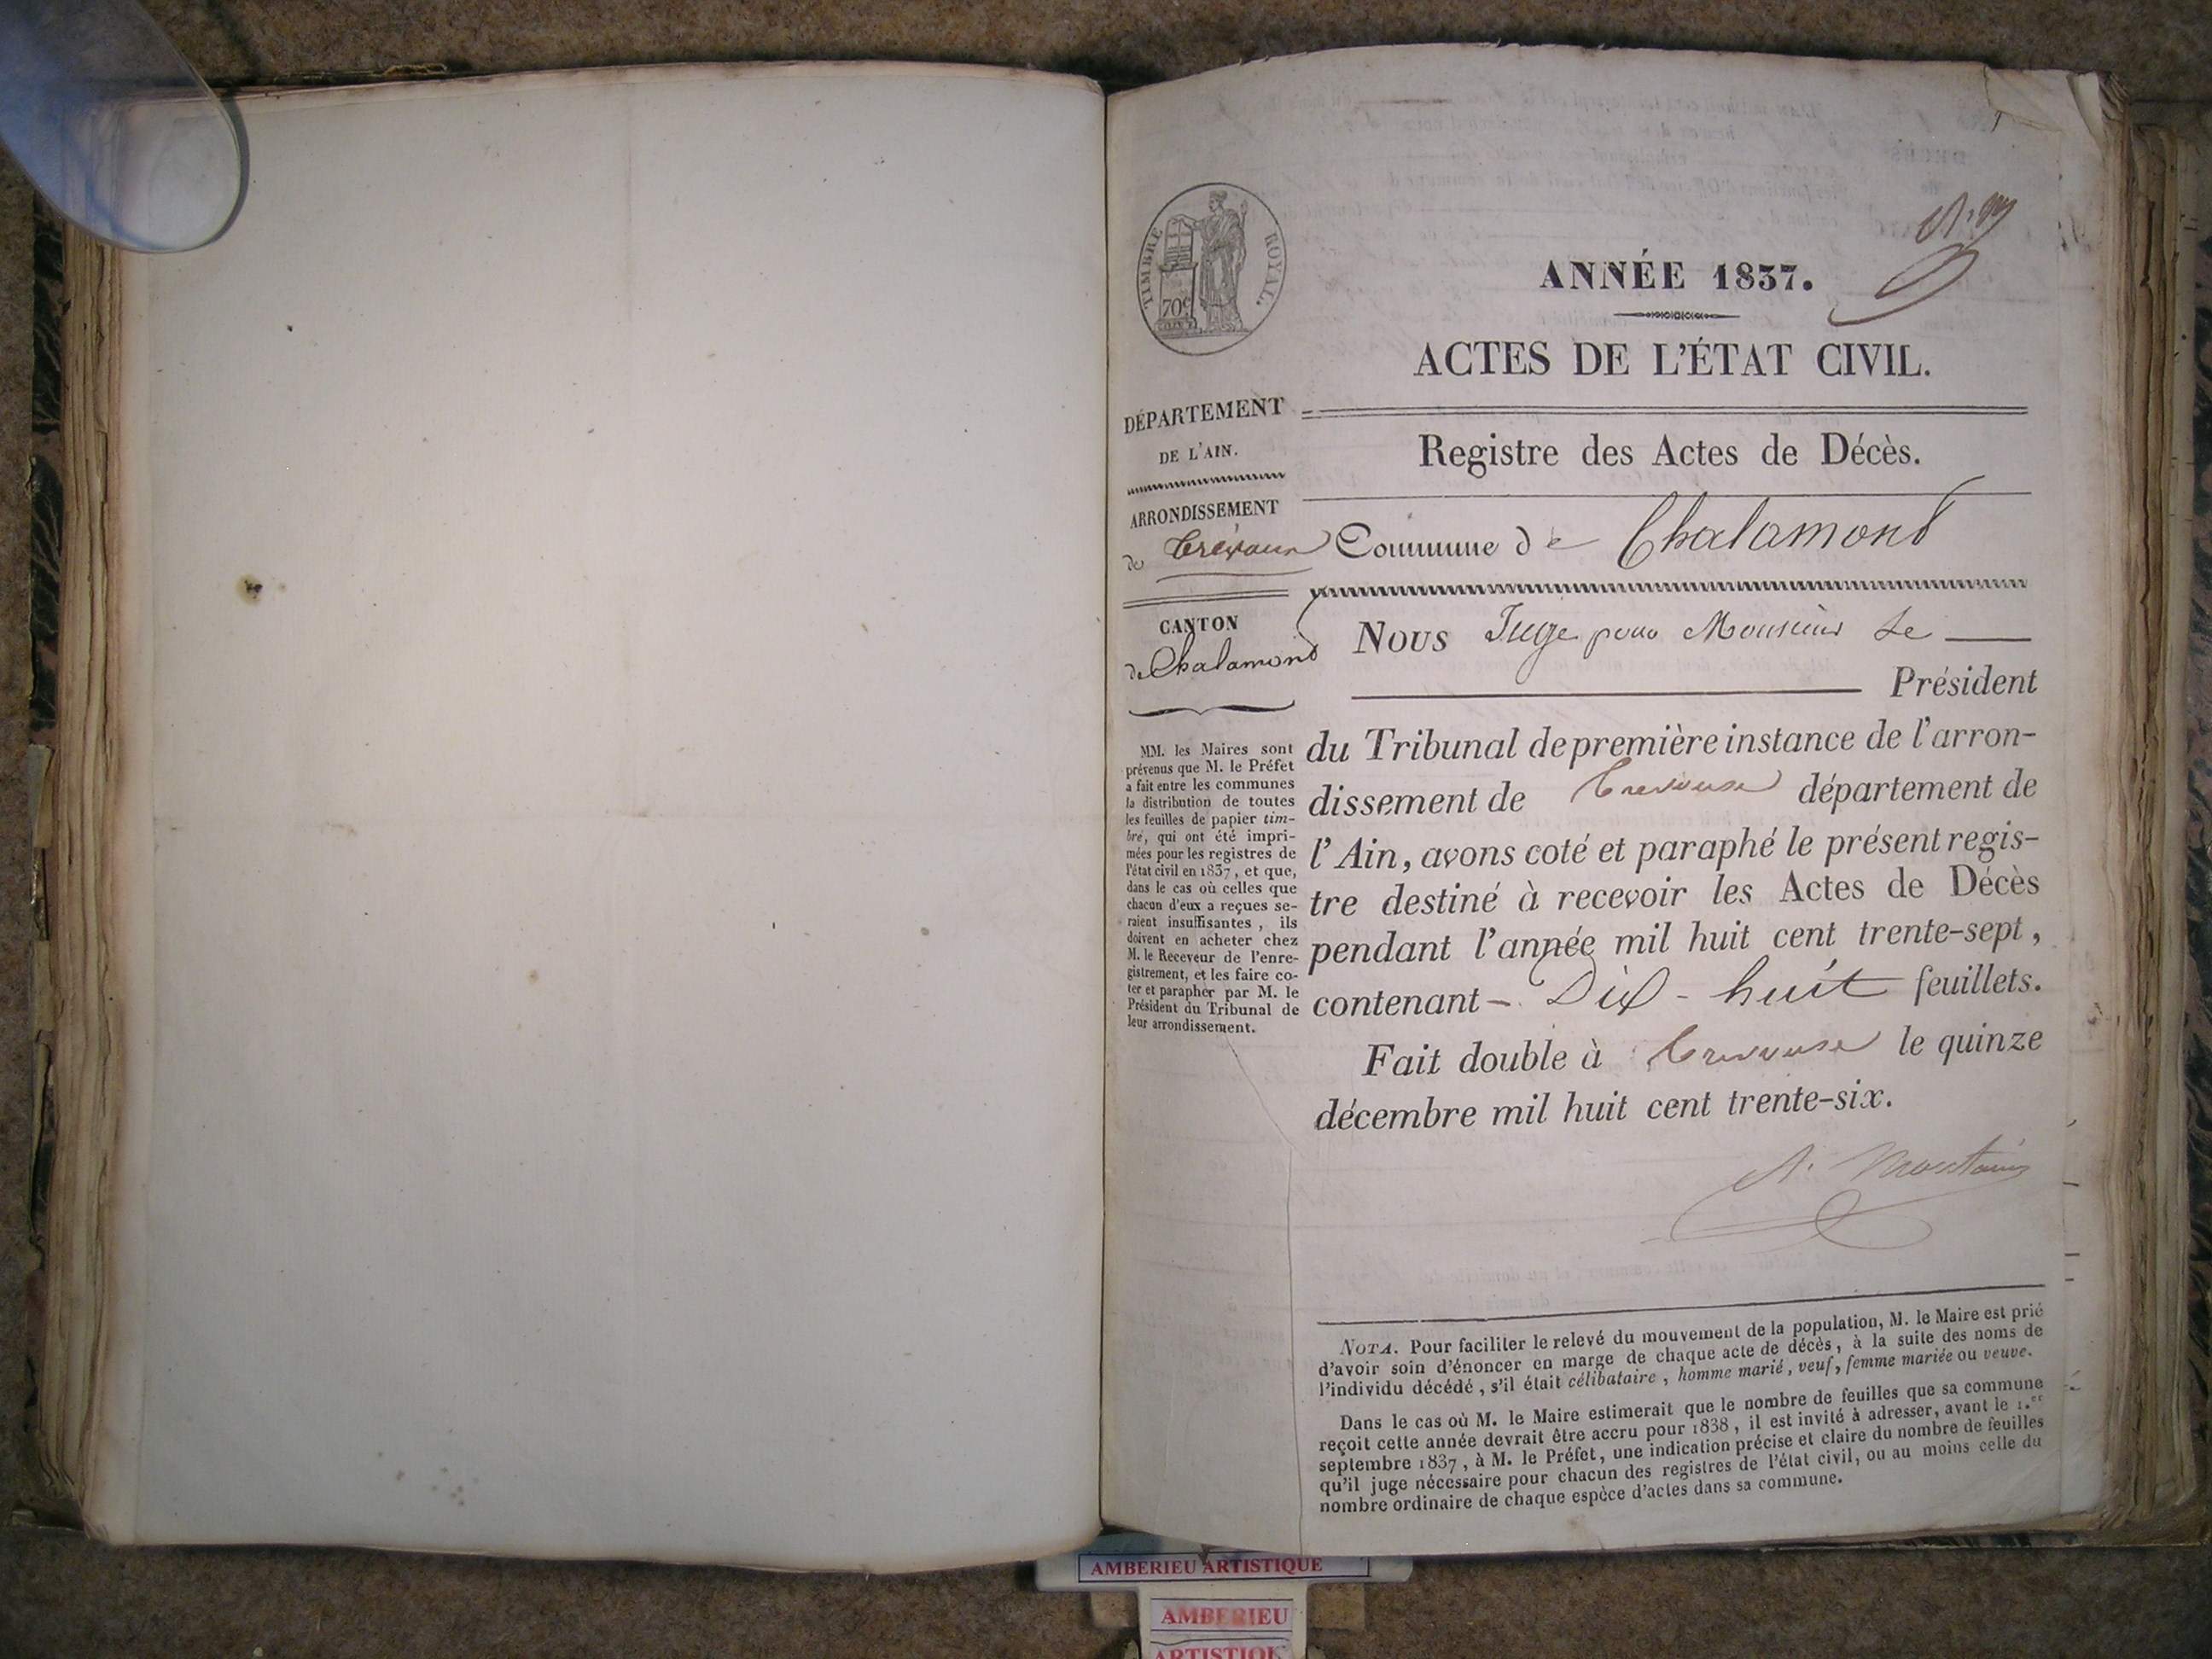 TIMBRE ROYAL.
70c
ANNÉE 1837.
ACTES DE L'ÉTAT CIVIL.
DÉPARTEMENT
DE L'AIN.
ARRONDISSEMENT
de Trévoux
CANTON
de Chalamont
MM. les Maires sont
prévenus que M. le Préfet
a fait entre les communes
la distribution de toutes
les feuilles de papier tim-
bré, qui ont été impri-
mées pour les registres de
l'état civil en 1837, et que,
dans le cas où celles que
chacun d'eux a reçues se-
raient insuffisantes, ils
doivent en acheter chez
M. le Receveur de l'enre-
gistrement, et les faire co-
ter et parapher par M. le
Président du Tribunal de
leur arrondissement.
Registre des Actes de Décès.
Commune de Chalamont
Nous Juge pour Monsieur Le
Président
du Tribunal de première instance de l'arron-
dissement de Trevoux département de
l'Ain, avons coté et paraphé le présent regis-
tre destiné à recevoir les Actes de Décès
pendant l'année mil huit cent trente-sept,
contenant - Dix-huit feuillets.
Fait double à Trevoux le quinze
décembre mil huit cent trente-six.
NOTA. Pour faciliter le relevé du mouvement de la population, M. le Maire est prié
d'avoir soin d'énoncer en marge de chaque acte de décès, à la suite des noms de
l'individu décédé, s'il était célibataire, homme marié, veuf, femme mariée ou veuve.
Dans le cas où M. le Maire estimerait que le nombre de feuilles que sa commune
reçoit cette année devrait être accru pour 1838, il est invité à adresser, avant le 1.er
septembre 1837, à M. le Préfet, une indication précise et claire du nombre de feuilles
qu'il juge nécessaire pour chacun des registres de l'état civil, ou au moins celle du
nombre ordinaire de chaque espèce d'actes dans sa commune.
AMBERIEU ARTISTIQUE
AMBERIEU